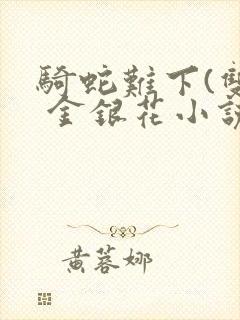 騎蛇難下(雙
金銀花小說
黃蓉娜